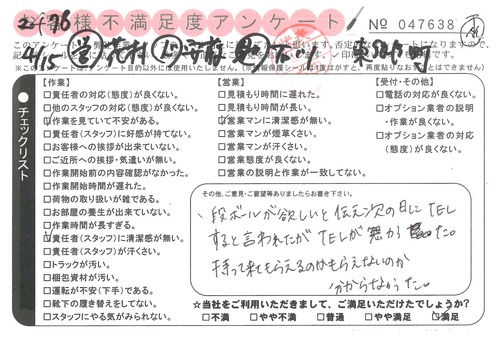 様不満足度アンケート
№ 047638
チェックリスト
【作業】
□責任者の対応(態度)が良くない。
□他のスタッフの対応(態度)が良くない。
□作業を見ていて不安がある。
□責任者(スタッフ)に好感が持てない。
□お客様への挨拶が出来ていない。
□ご近所への挨拶・気遣いが無い。
□作業開始前の内容確認がなかった。
□作業開始時間が遅れた。
□荷物の取り扱いが雑である。
□お部屋の養生が出来ていない。
□作業時間が長すぎる。
□責任者(スタッフ)に清潔感が無い。
□責任者(スタッフ)が汗くさい。
□トラックが汚い。
□梱包資材が汚い。
□運転が不安(下手)である。
□靴下の履き替えをしてない。
□スタッフにやる気がみられない。
【営業】
□見積もり時間に遅れた。
□見積もり時間が長い。
□営業マンに清潔感が無い。
□営業マンが煙草くさい。
□営業マンが汗くさい。
□営業態度が良くない。
□営業の説明と作業が一致してない。
【受付・その他】
□電話の対応が良くない。
□オプション業者の説明
・作業が良くない。
□オプション業者の対応
(態度)が良くない。
その他、ご意見・ご要望等ありましたらお書き下さい。
段ボールが欲しいと伝え次の日にTEL
すると言われたがTELが無か った。
持って来てもらえるのかもらえないのか
わからなかった。
☆当社をご利用いただきまして、ご満足いただけたでしょうか?
□不満 □やや不満 □普通 □やや満足 □満足